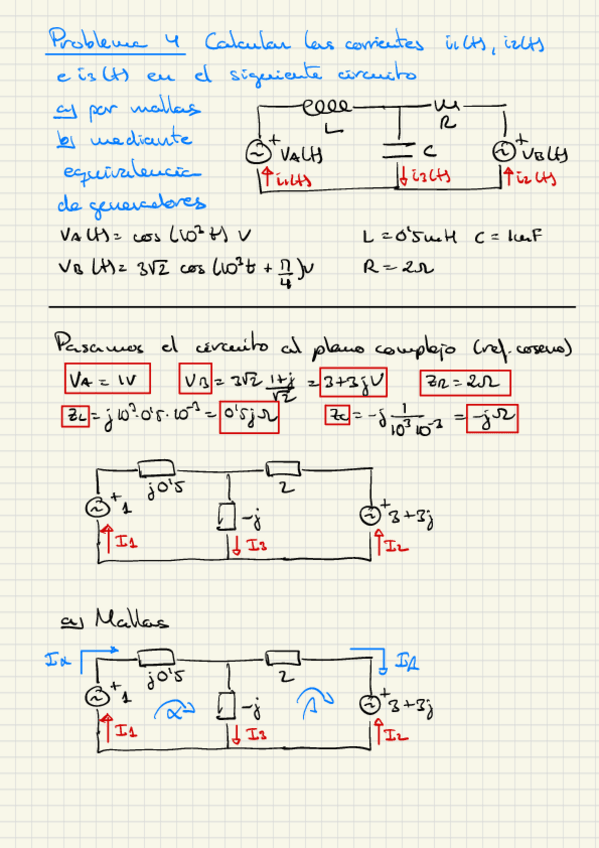 Problema 4 Calcular las corrientes i1(t), i2(t)
e i3(t) en el siguiente circuito
a) por mallas
b) mediante
equivalencia
de generadores
L
R
+
VA(t)
C
+
VB(t)
i1(t)
i3(t)
i2(t)
VA(t) = cos (10³ t) V
L = 0'5 mH C = 1 mF
VB(t) = 3√2 cos (10³t + π/4) V
R = 2Ω
Pasamos el circuito al plano complejo (ref. coseno)
VA = 1V VB = 3√2 (1+j)/√2 = 3+3j V ZR = 2Ω
ZL = j 10³·0'5·10⁻³ = 0'5j Ω Zc = -j 1/(10³ 10⁻³) = -j Ω
j0'5
2
+ 1
-j
+ 3+3j
I1
I3
I2
a) Mallas
Iα
Iβ
j0'5
2
+ 1
α
-j
β
+ 3+3j
I1
I3
I2